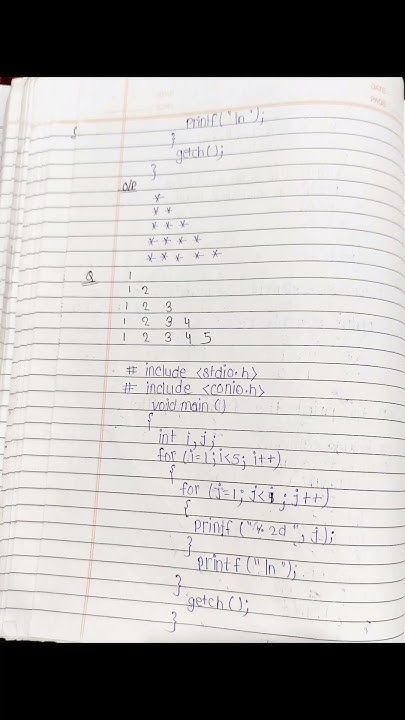 DATE
PAGE
printf("\n");
}
getch();
}
O/P
*
* *
* * *
* * * *
* * * * *
Q 1
1 2
1 2 3
1 2 3 4
1 2 3 4 5
# include <stdio.h>
# include <conio.h>
void main()
{
int i,j;
for (i=1;i<5; i++)
{
for (j=1; j<i ; j++)
{
printf ("% 2d ", j);
}
printf ("\n");
}
getch();
}